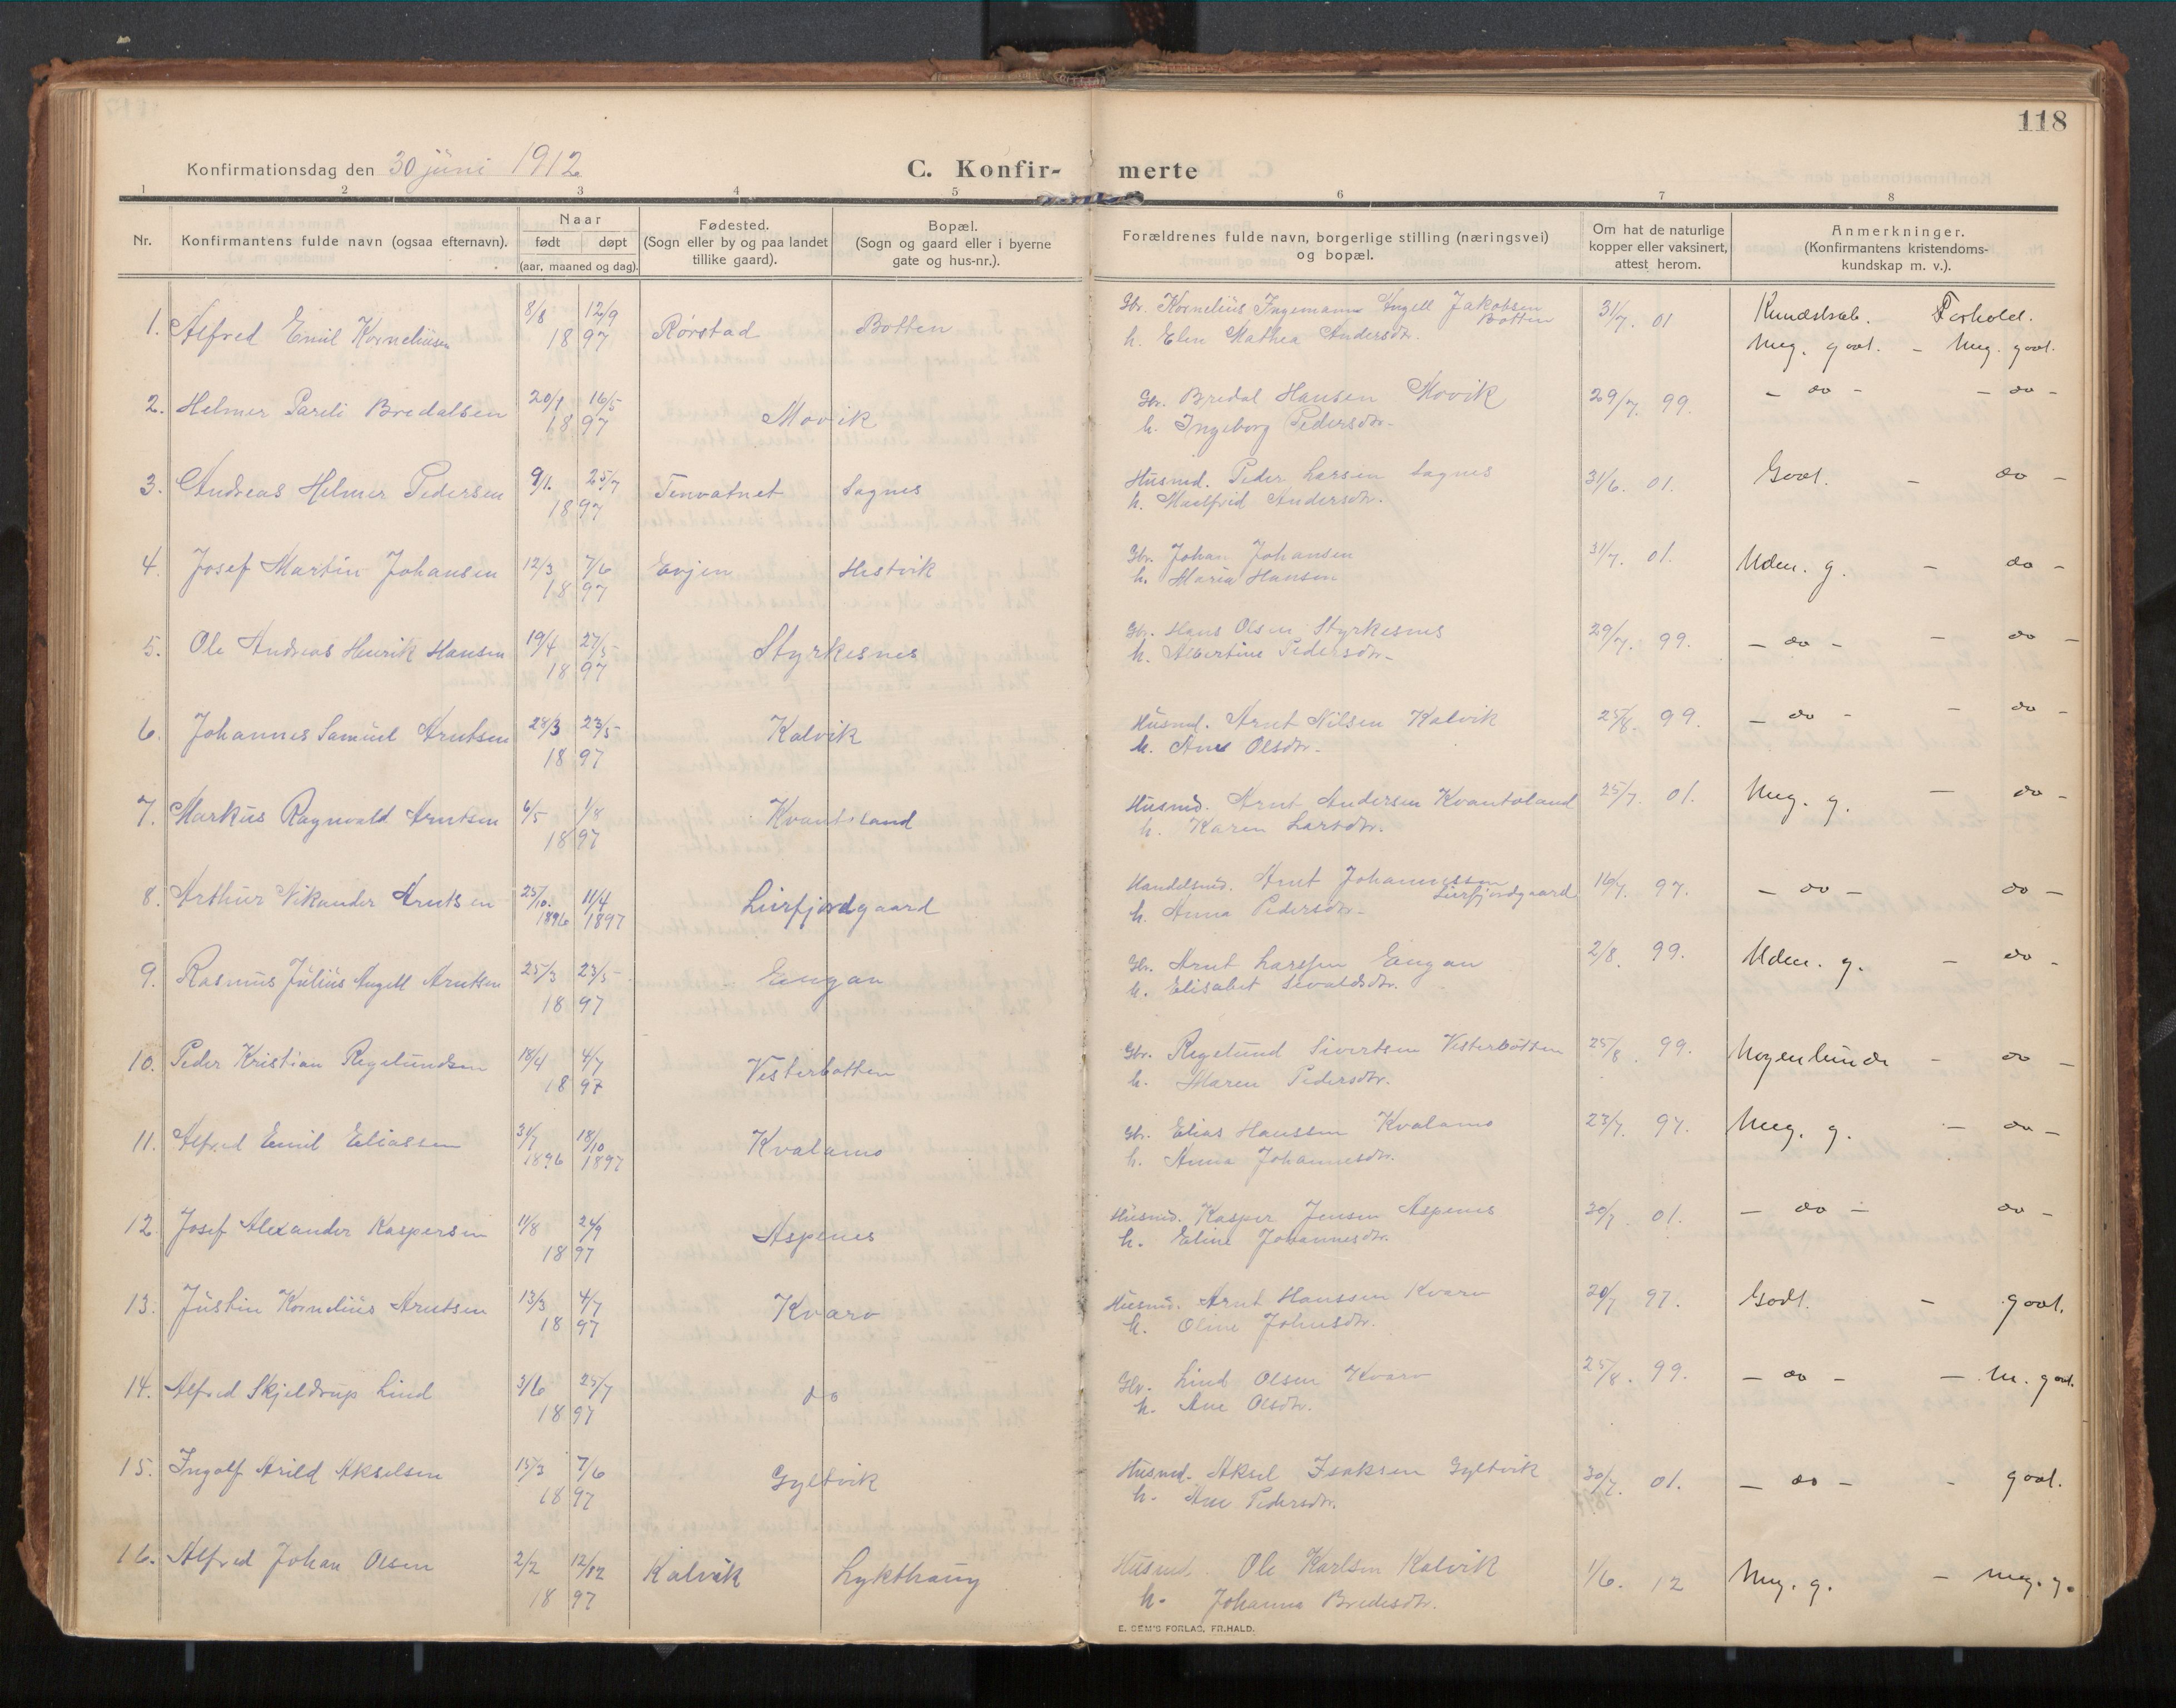 118
Konfirmationsdag den 30 juni 1912
C. Konfir- merte
1 2 3 4 5 6 7 8
Nr.
Konfirmantens fulde navn (ogsaa efternavn).
Naar
født døpt
(aar, maaned og dag).
Fødested.
(Sogn eller by og paa landet
tillike gaard).
Bopæl.
(Sogn og gaard eller i byerne
gate og hus-nr.).
Forældrenes fulde navn, borgerlige stilling (næringsvei)
og bopæl.
Om hat de naturlige
kopper eller vaksinert,
attest herom.
Anmerkninger.
(Konfirmantens kristendoms-
kundskap m. v.).
1. Alfred Emil Korneliusen 8/8 12/9 1897 Rørstad Botten
Gbr. Kornelius Ingemann Angell Jakobsen Botten 31/7. 01 Kundskab. Forhold.
h. Elen Mathea Andersdtr. Meg. godt. - Meg. godt.
2. Helmer Pareli Bredalsen 20/1 16/5 1897 Movik
Gbr. Bredal Hansen Movik 29/7. 99. - do - - do -
h. Ingeborg Pedersdtr.
3. Andreas Helmer Pedersen 9/1. 25/7 1897 Tenvatnet Sagnes
Husmd. Peder Larsen Sagnes 31/6. 01. Godt. - do -
h. Maelfrid Andersdtr.
4. Josef Martin Johansen 12/3 7/6 1897 Evjen Hestvik
Gbr. Johan Johansen 31/7. 01. Uden. g. - do -
h. Maria Hansen
5. Ole Andreas Henrik Hansen 19/4 27/5 1897 Styrkesnes
Gbr. Hans Olsen Styrkesnes 29/7. 99. - do - - do -
h. Albertine Pedersdtr.
6. Johannes Samuel Arntsen 28/3 23/5 1897 Kalvik
Husmd. Arnt Nilsen Kalvik 25/8. 99. - do - - do -
h. Ane Olsdtr.
7. Markus Ragnvald Arntsen 6/5 1/8 1897 Kvantoland
Husmd. Arnt Andersen Kvantoland 25/7. 01. Meg. g. - do -
h. Karen Larsdtr.
8. Arthur Nikander Arntsen 25/10. 1896 11/4 1897 Leirfjordgaard
Handelsmd. Arnt Johannessen Leirfjordgaard 16/7. 97. - do - do -
h. Anna Pedersdtr.
9. Rasmus Julius Angell Arntsen 25/3 23/5 1897 Engan
Gbr. Arnt Larssen Engan 2/8. 99. Uden. g. - do -
h. Elisabet Sivaldsdtr.
10. Peder Kristian Regelundsen 18/4 4/7 1897 Vesterbotten
Gbr. Regelund Sivertsen Vesterbotten 25/8. 99. Nogenlunde - do -
h. Maren Pedersdtr.
11. Alfred Emil Eliassen 31/7 1896 18/10 1897 Kvalamo
Gbr. Elias Hanssen Kvalamo 23/7. 97. Meg. g. - do -
h. Anna Johannesdtr.
12. Josef Alexander Kaspersen 11/8 24/9 1897 Aspenes
Husmd. Kasper Jensen Aspenes 30/7. 01. - do - do -
h. Eline Johannesdtr.
13. Justin Kornelius Arntsen 13/3 4/7 1897 Kvarv
Husmd. Arnt Hanssen Kvarv 20/7 97. Godt. - godt.
h. Oline Johnsdtr.
14. Alfred Skjeldrup Lind 3/6 25/7 1897 do
Gbr. Lind Olsen Kvarv 25/8. 99. - do - - M. godt.
h. Ane Olsdtr.
15. Ingolf Arild Akselsen 15/3 7/6 1897 Gyltvik
Husmd. Aksel Isaksen Gyltvik 30/7. 01. - do - - godt.
h. Ane Pedersdtr.
16. Alfred Johan Olsen 2/2 12/12 1897 Kalvik Lykthaug
Husmd. Ole Karlsen Kalvik 1/6. 12 Meg. g. - meg. g.
h. Johanna Bredesdtr.
E. SEM'S FORLAG, FR.HALD.